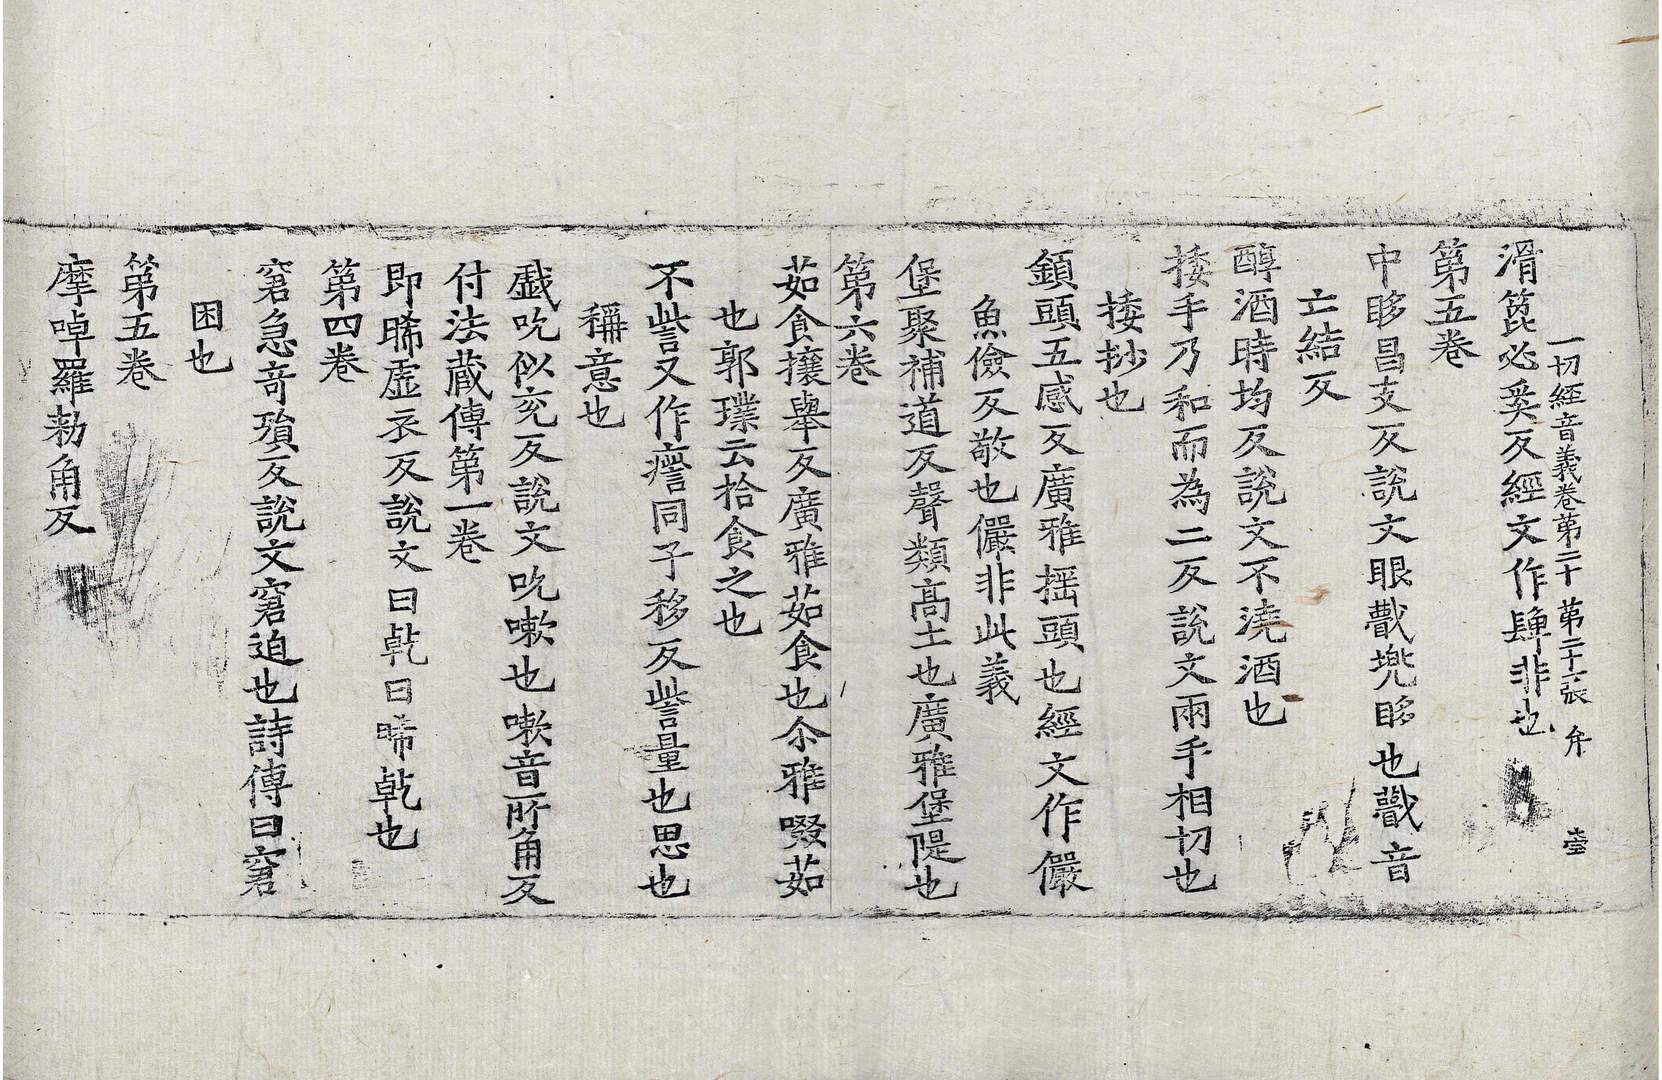 一切經音義卷第二十 第二十六張 弁 壹
滑箆必奚反經文作䏶非也
第五卷
中眵昌支反說文眼蕺兠眵也蕺音
亡結反
醇酒時均反說文不澆酒也
捼手乃和反說文兩手相切也
捼抄也
鎮頭五感反廣雅搖頭也經文作儼
魚儉反敬也儼非此義
堡聚補道反聲類高土也廣雅堡隄也
第六卷
茹食攘舉反廣雅茹食也尒雅啜茹
也郭璞云拾食之也
不訾又作𧪡同子移反訾量也思也
稱意也
戱吮似兖反說文吮嗽也嗽音所角反
付法藏傳第一卷
即晞虛衣反說文日乹曰晞乹也
第四卷
窘急奇殞反說文窘迫也詩傳曰窘
困也
第五卷
摩啅羅勑角反